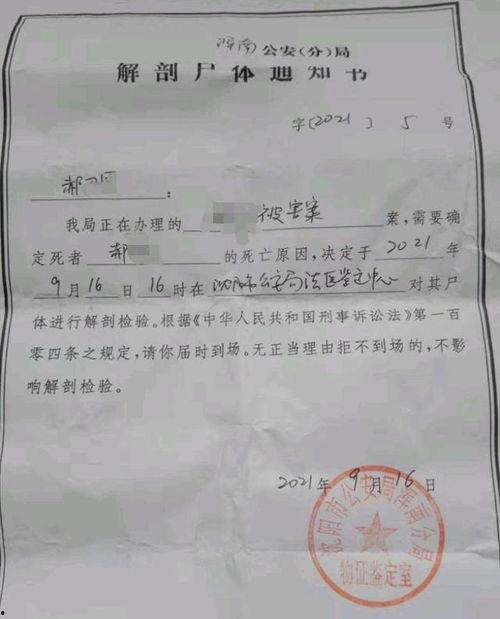 浑南公安(分)局
解剖尸体通知书
字[2021]5号
郝
:
我局正在办理的 被害案 案,需要确
定死者 郝 的死亡原因,决定于 2021 年
9月16日16时在沈阳市公安局法医鉴定中心对其尸
体进行解剖检验。根据《中华人民共和国刑事诉讼法》第一百
零四条之规定,请你届时到场。无正当理由拒不到场的,不影
响解剖检验。
2021年9月16日
沈阳市公安局浑南分局
物证鉴定室